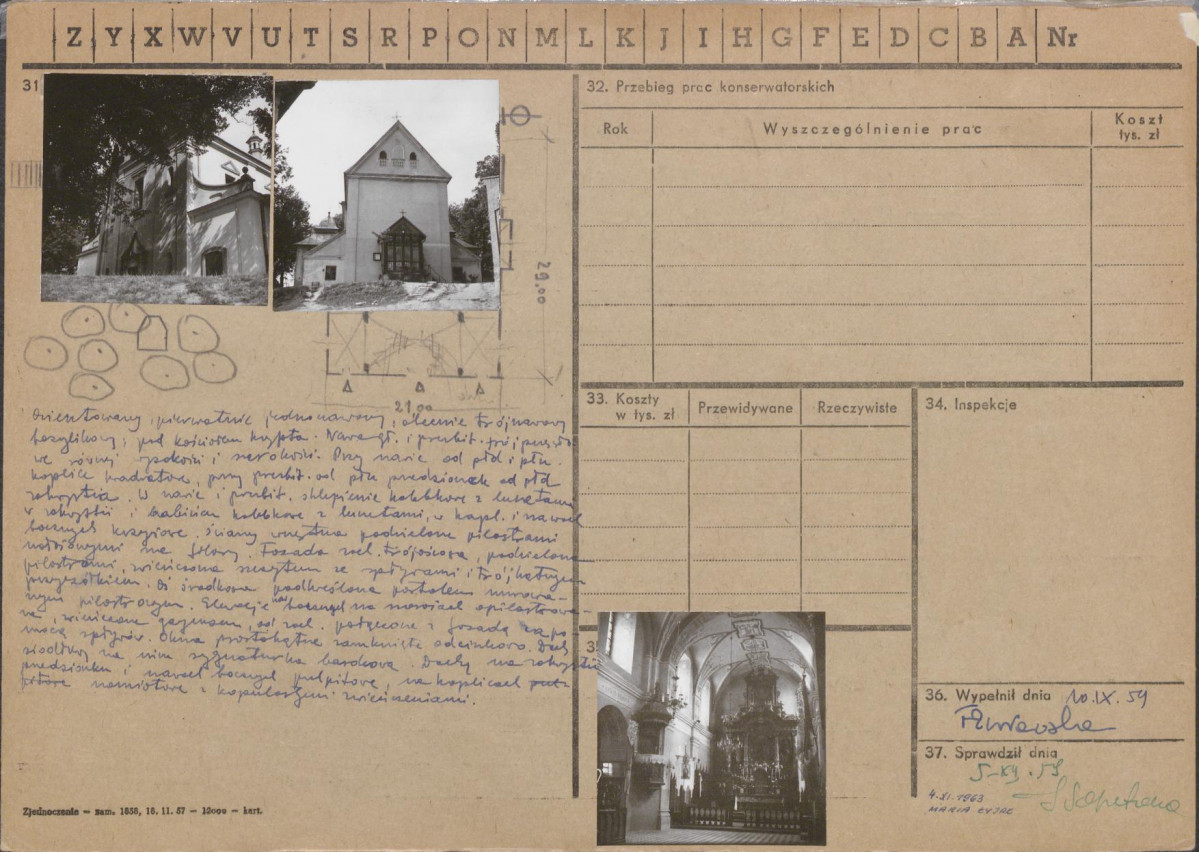 Z Y X W V U T S R P O N M L K J I H G F E D C B A Nr
31
29,00
21,00
Orientowany, pierwotnie jednonawowy, obecnie trójnawowy
bazylikowy, pod kościołem krypta. Nawa gł. i prezbit. trójprzęsło
we równej wysokości i szerokości. Przy nawie od płd i płn.
kaplice kwadratowe, przy prezbit. od płn przedsionek od płd
zakrystia. W nawie i prezbit. sklepienie kolebkowe z lunetami
w zakrystii i babińcu kolebkowe z lunetami, w kapl. i nawach
bocznych krzyżowe. Ściany wnętrza podzielone pilastrami
na filary. Fasada zach. trójosiowa, podzielona
pilastrami, zwieńczona szczytem ze spływami i trójkątnym
przyczółkiem. Oś środkowa podkreślona portalem murowa-
nym pilastrowym. Elewacje naw bocznych na narożach opilastrowa-
ne, zwieńczone gzymsem, od zach. połączone z fasadą za po
mocą spływów. Okna prostokątne zamknięte odcinkowo. Dach
siodłowy na nim sygnaturka barokowa. Dachy na zakrystii
przedsionku i nawach bocznych pulpitowe, na kaplicach
namiotowe z kopulastymi zwieńczeniami.
Zjednoczenie — zam. 1858, 16. 11. 57 — 12000 — kart.
32. Przebieg prac konserwatorskich
Rok Wyszczególnienie prac Koszt tys. zł
33. Koszty w tys. zł Przewidywane Rzeczywiste
34. Inspekcje
35
36. Wypełnił dnia 10.IX.59
37. Sprawdził dnia
5-XII.59
4.XI.1963
MARIA ŁYJAK